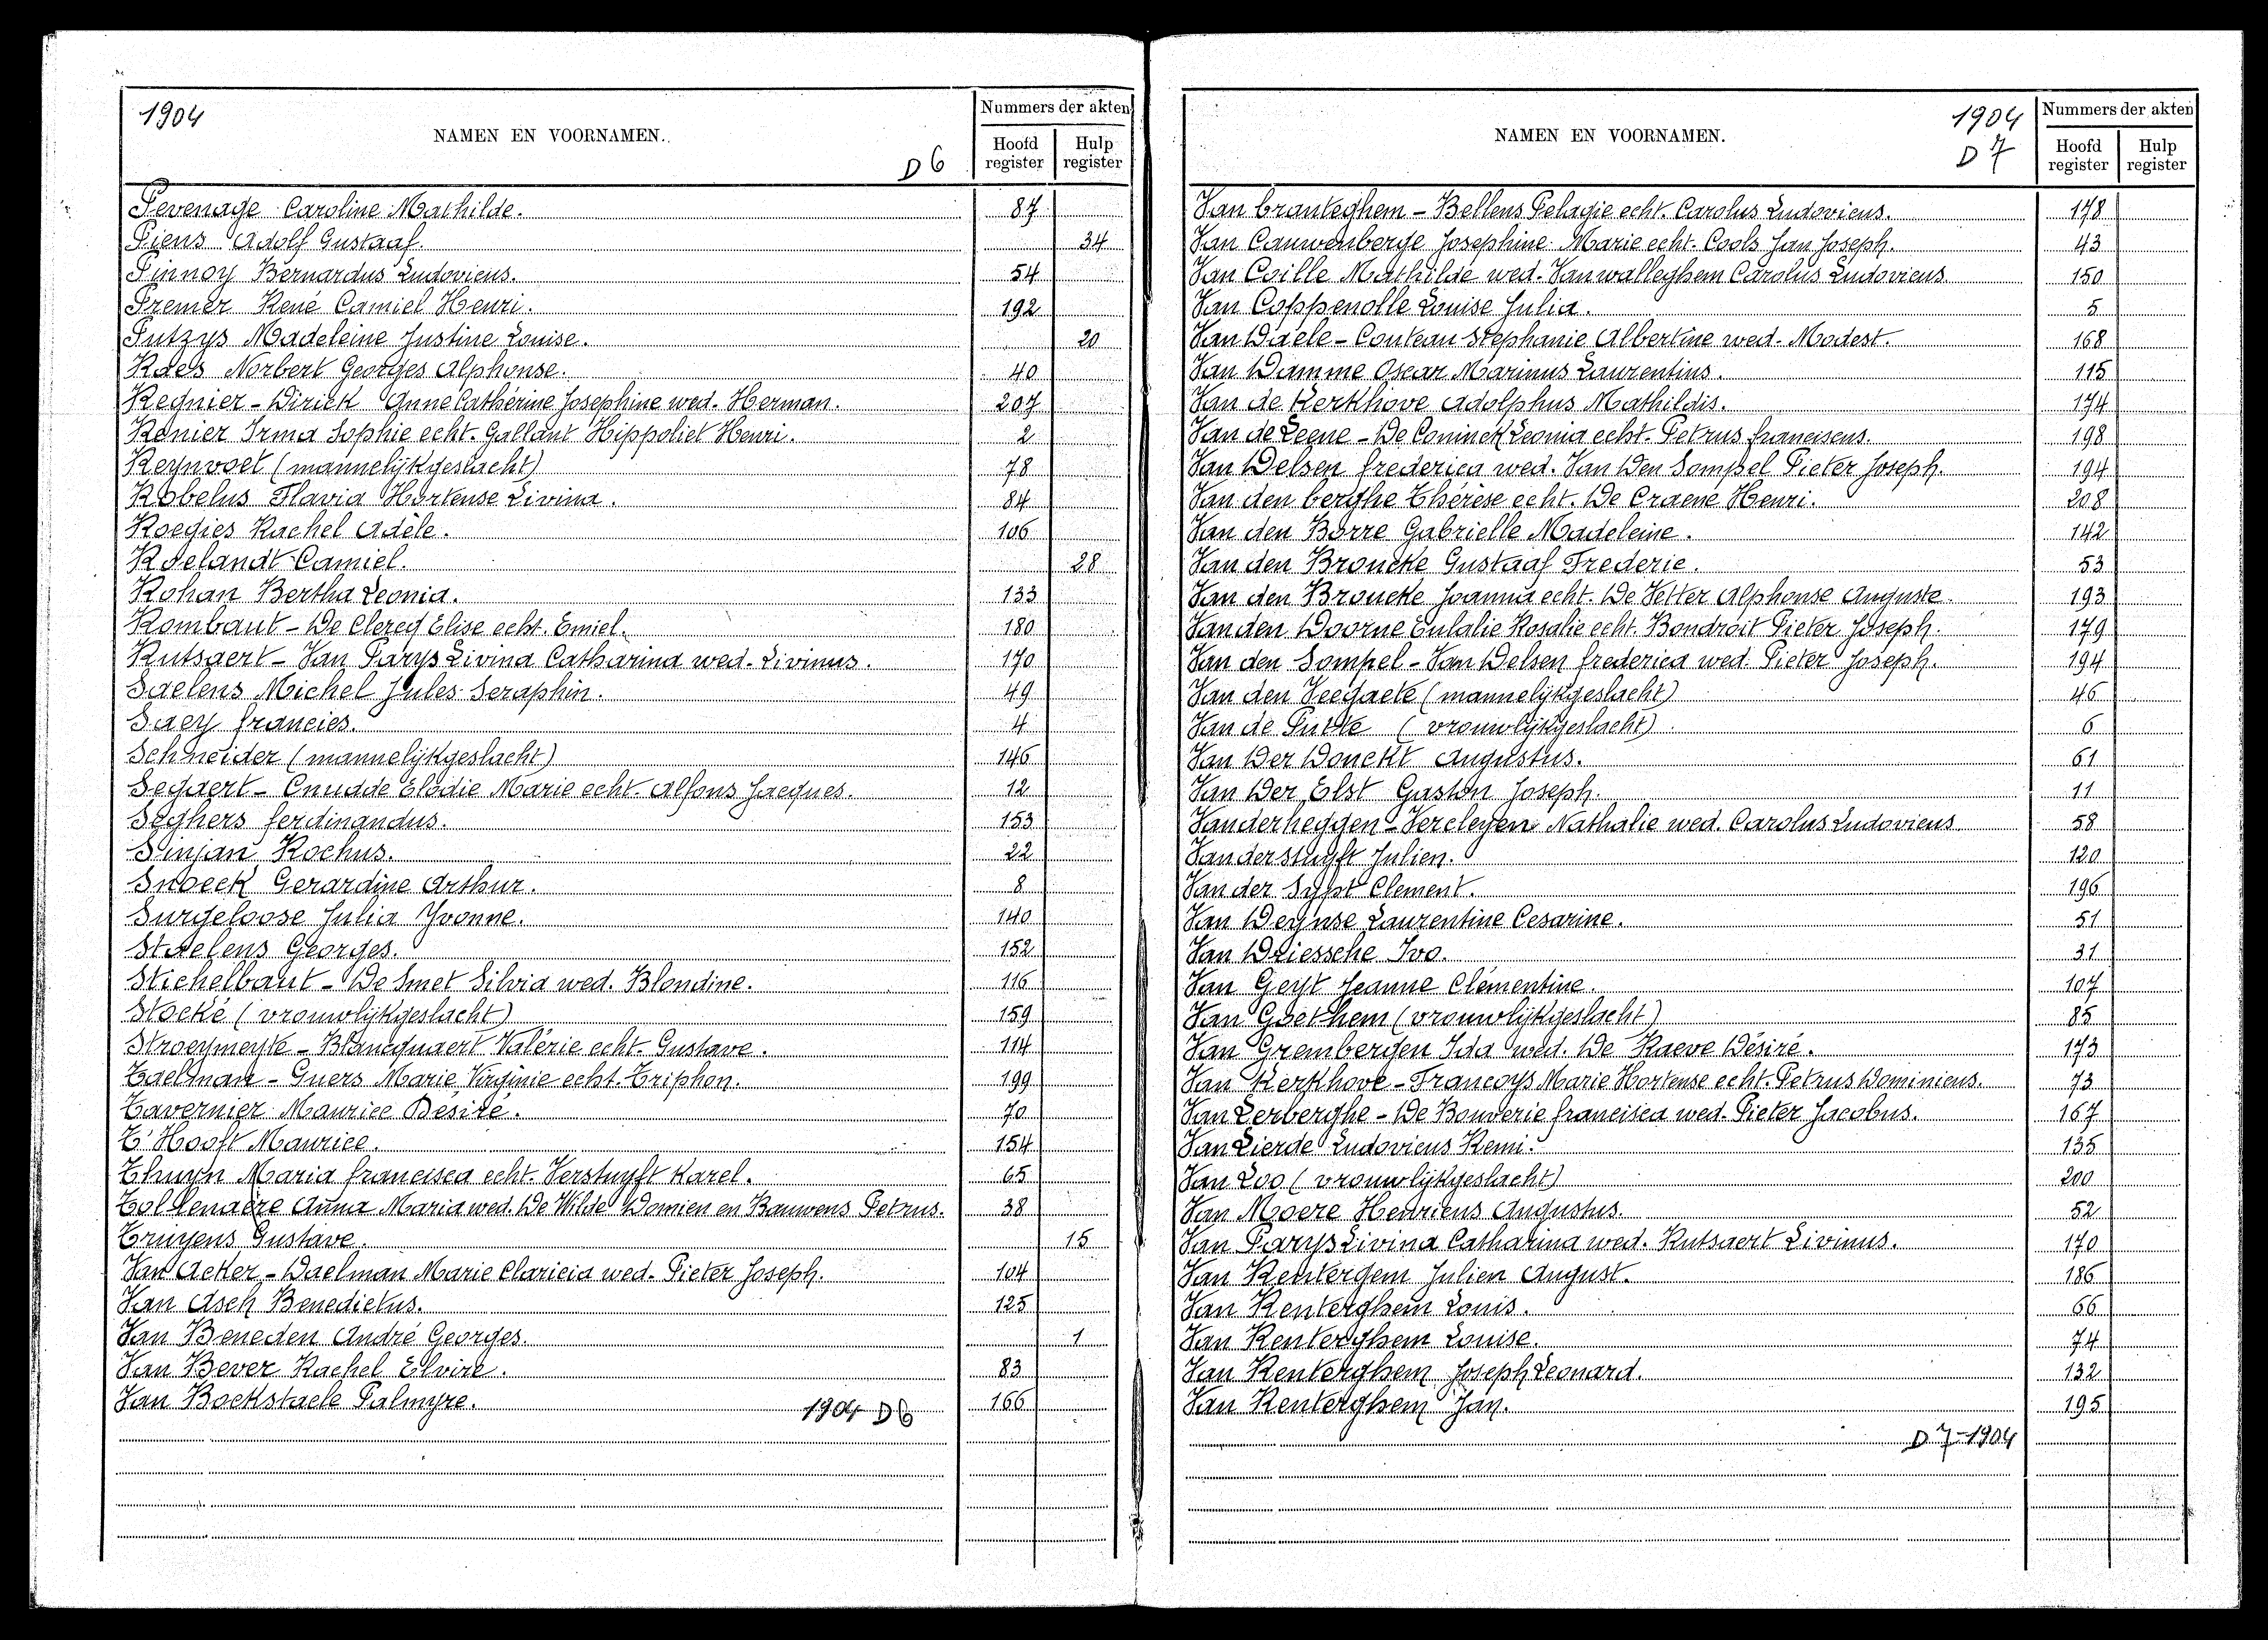 1904
NAMEN EN VOORNAMEN.
D 6
Nummers der akten
Hoofd register
Hulp register
Pevenage Caroline Mathilde. 87
Piens Adolf Gustaaf. 34
Pinnoy Bernardus Ludovicus. 54
Premer René Camiel Henri. 192
Putzys Madeleine Justine Louise. 20
Raes Norbert Georges Alphonse. 40
Regnier - Dirick Anne Cathérine Josephine wed. Herman. 207
Renier Irma Sophie echt. Gallant Hippoliet Henri. 2
Reynvoet (mannelijkgeslacht) 78
Robelus Flavia Hortense Livina. 84
Roegies Rachel Adèle. 106
Roelandt Camiel. 28
Rohan Bertha Leonia. 133
Rombaut - De Clercq Elise echt. Emiel. 180
Rutsaert - Van Parys Livina Catharina wed. Livinus. 170
Saelens Michel Jules Seraphin. 49
Saey francies. 4
Schneider (mannelijkgeslacht) 146
Segaert - Cnudde Elodie Marie echt. Alfons Jacques. 12
Seghers ferdinandus. 153
Sinjan Rochus. 22
Snoeck Gerardine Arthur. 8
Surgeloose Julia Yvonne. 140
Staelens Georges. 152
Stichelbaut - De Smet Silvia wed. Blondine. 116
Stocké (vrouwlijkgeslacht) 159
Stroeymeyte - Blancquaert Valérie echt. Gustave. 114
Taelman - Guers Marie Virginie echt. Triphon. 199
Tavernier Maurice Désiré. 70
T'Hooft Maurice. 154
Thuyn Maria francisca echt. Verstuyft Karel. 65
Tollenaere Anna Maria wed. De Wilde Domien en Bauwens Petrus. 38
Truyens Gustave. 15
Van Acker - Daelman Marie Claricia wed. Pieter Joseph. 104
Van Asch Benedictus. 125
Van Beneden André Georges. 1
Van Bever Rachel Elvire. 83
Van Bockstaele Palmyre. 166
1904 D6
NAMEN EN VOORNAMEN.
1904
D 7
Nummers der akten
Hoofd register
Hulp register
Van branteghem - Bellens Pelagie echt. Carolus Ludovicus. 178
Van Cauwenberge Josephine Marie echt. Cools Jan Joseph. 43
Van Coille Mathilde wed. Vanwalleghem Carolus Ludovicus 150
Van Coppenolle Louise Julia. 5
Van Daele - Couteau Stephanie Albertine wed. Modest. 168
Van Damme Oscar Marinus Laurentius. 115
Van de Kerkhove Adolphus Mathildis. 174
Van de Leene - De Coninck Leonia echt. Petrus franciscus. 198
Van Delsen frederica wed. Van Den Sompel Pieter Joseph. 194
Van den berghe Thérèse echt. De Craene Henri. 208
Van den Borre Gabrielle Madeleine. 142
Van den Broucke Gustaaf Frederic. 53
Van den Broucke Joanna echt. De Vetter Alphonse Auguste. 193
Van den Doorne Eulalie Rosalie echt. Bondroit Pieter Joseph. 179
Van den Sompel - Van Delsen frederica wed. Pieter Joseph. 194
Van den Veegaete (mannelijkgeslacht) 46
Van de Putte (vrouwlijkgeslacht) 6
Van Der Donckt Augustus. 61
Van Der Elst Gaston Joseph. 11
Vanderheggen - Vercleyen Nathalie wed. Carolus Ludovicus 58
Vanderstuyft Julien. 120
Van der Sypt Clement. 196
Van Deynse Laurentine Cesarine. 51
Van Driessche Ivo. 31
Van Geyt Jeanne Clémentine. 107
Van Goethem (vrouwlijkgeslacht) 85
Van Grembergen Ida wed. De Raeve Désiré. 173
Van Kerkhove - Francoys Marie Hortense echt. Petrus Dominicus. 73
Van Lerberghe - De Bouverie francisca wed. Pieter Jacobus. 167
Van Lierde Ludovicus Remi. 135
Van Loo (vrouwlijkgeslacht) 200
Van Moere Henricus Augustus. 52
Van Parys Livina Catharina wed. Rutsaert Livinus. 170
Van Rentergem Julien August. 186
Van Renterghem Louis. 66
Van Renterghem Louise. 74
Van Renterghem Joseph Leonard. 132
Van Renterghem Jan. 195
D 7-1904